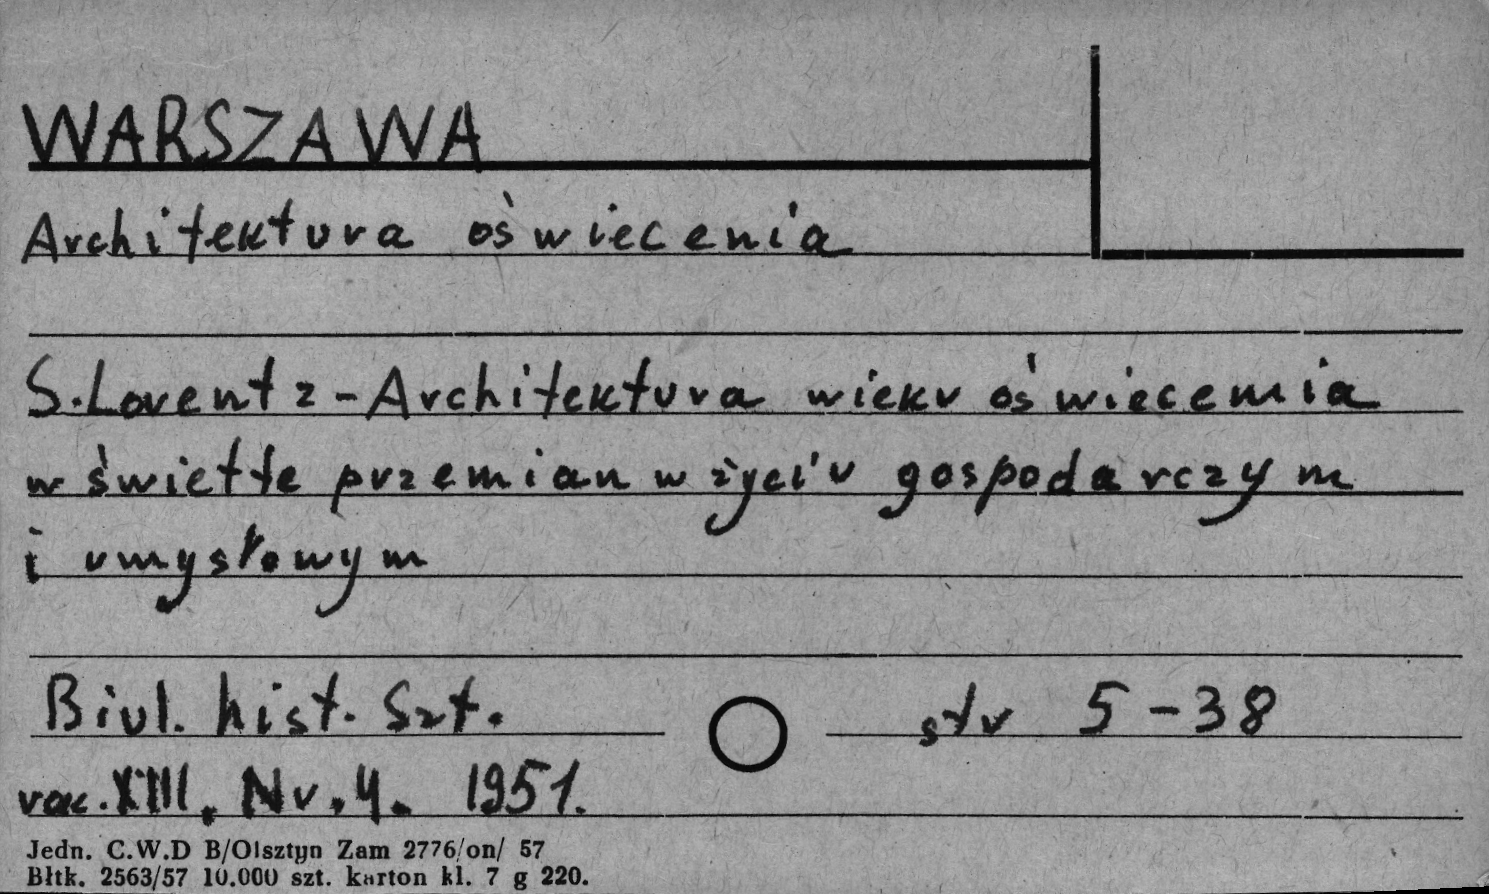 WARSZAWA
Architektura oświecenia
S. Lorentz - Architektura wieku oświecenia
w świetle przemian w życiu gospodarczym
i umysłowym
Biul. hist. Szt.
str 5-38
rok. XIII, Nr. 4. 1951.
Jedn. C.W.D B/Olsztyn Zam 2776/on/ 57
Błtk. 2563/57 10.000 szt. karton kl. 7 g 220.